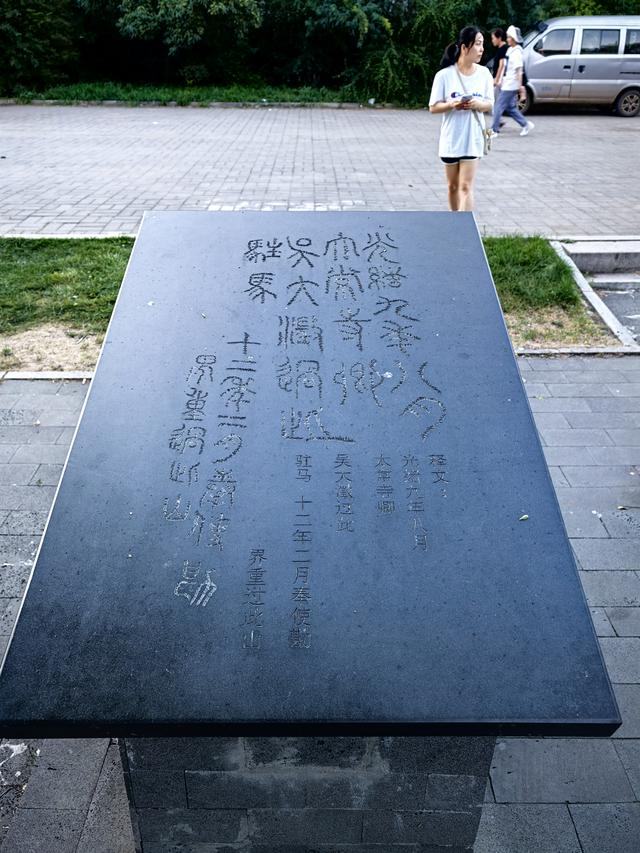 光緒九年八月
太常寺卿
吳大澂過此
駐馬
十二年二月奉使勘
界重過此山
释文：
光绪九年八月
太常寺卿
吴大澂过此
驻马 十二年二月奉使勘
界重过此山